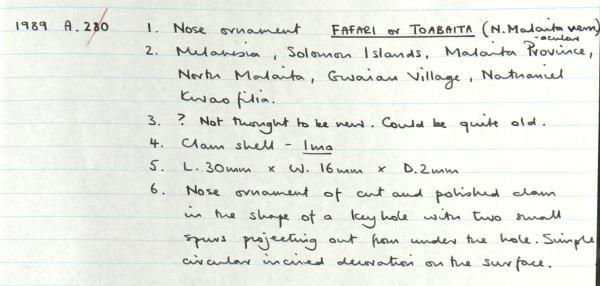 1989 A.280 1. Nose ornament FAFARI or TOABAITA (N. Malaita vern-
acular)
2. Melanesia, Solomon Islands, Malaita Province,
North Malaita, Gwaian Village, Nathaniel
Kwao filia.
3. ? Not thought to be new. Could be quite old.
4. Clam shell - Ima
5. L. 30mm x W. 16mm x D. 2mm
6. Nose ornament of cut and polished clam
in the shape of a keyhole with two small
spurs projecting out from under the hole. Simple
circular incired decoration on the surface.